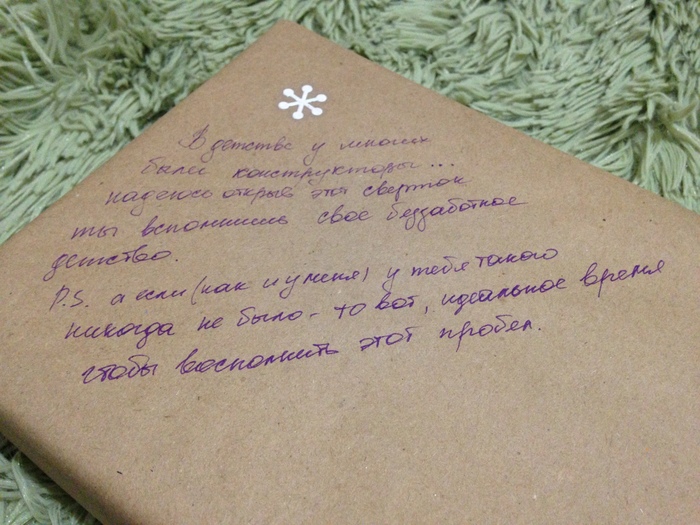 В детстве у многих
были конструкторы...
надеюсь открыв этот сверток
ты вспомнишь свое беззаботное
детство.
P.S. а если (как и у меня) у тебя такого
никогда не было - то вот, идеальное время
чтобы восполнить этот пробел.